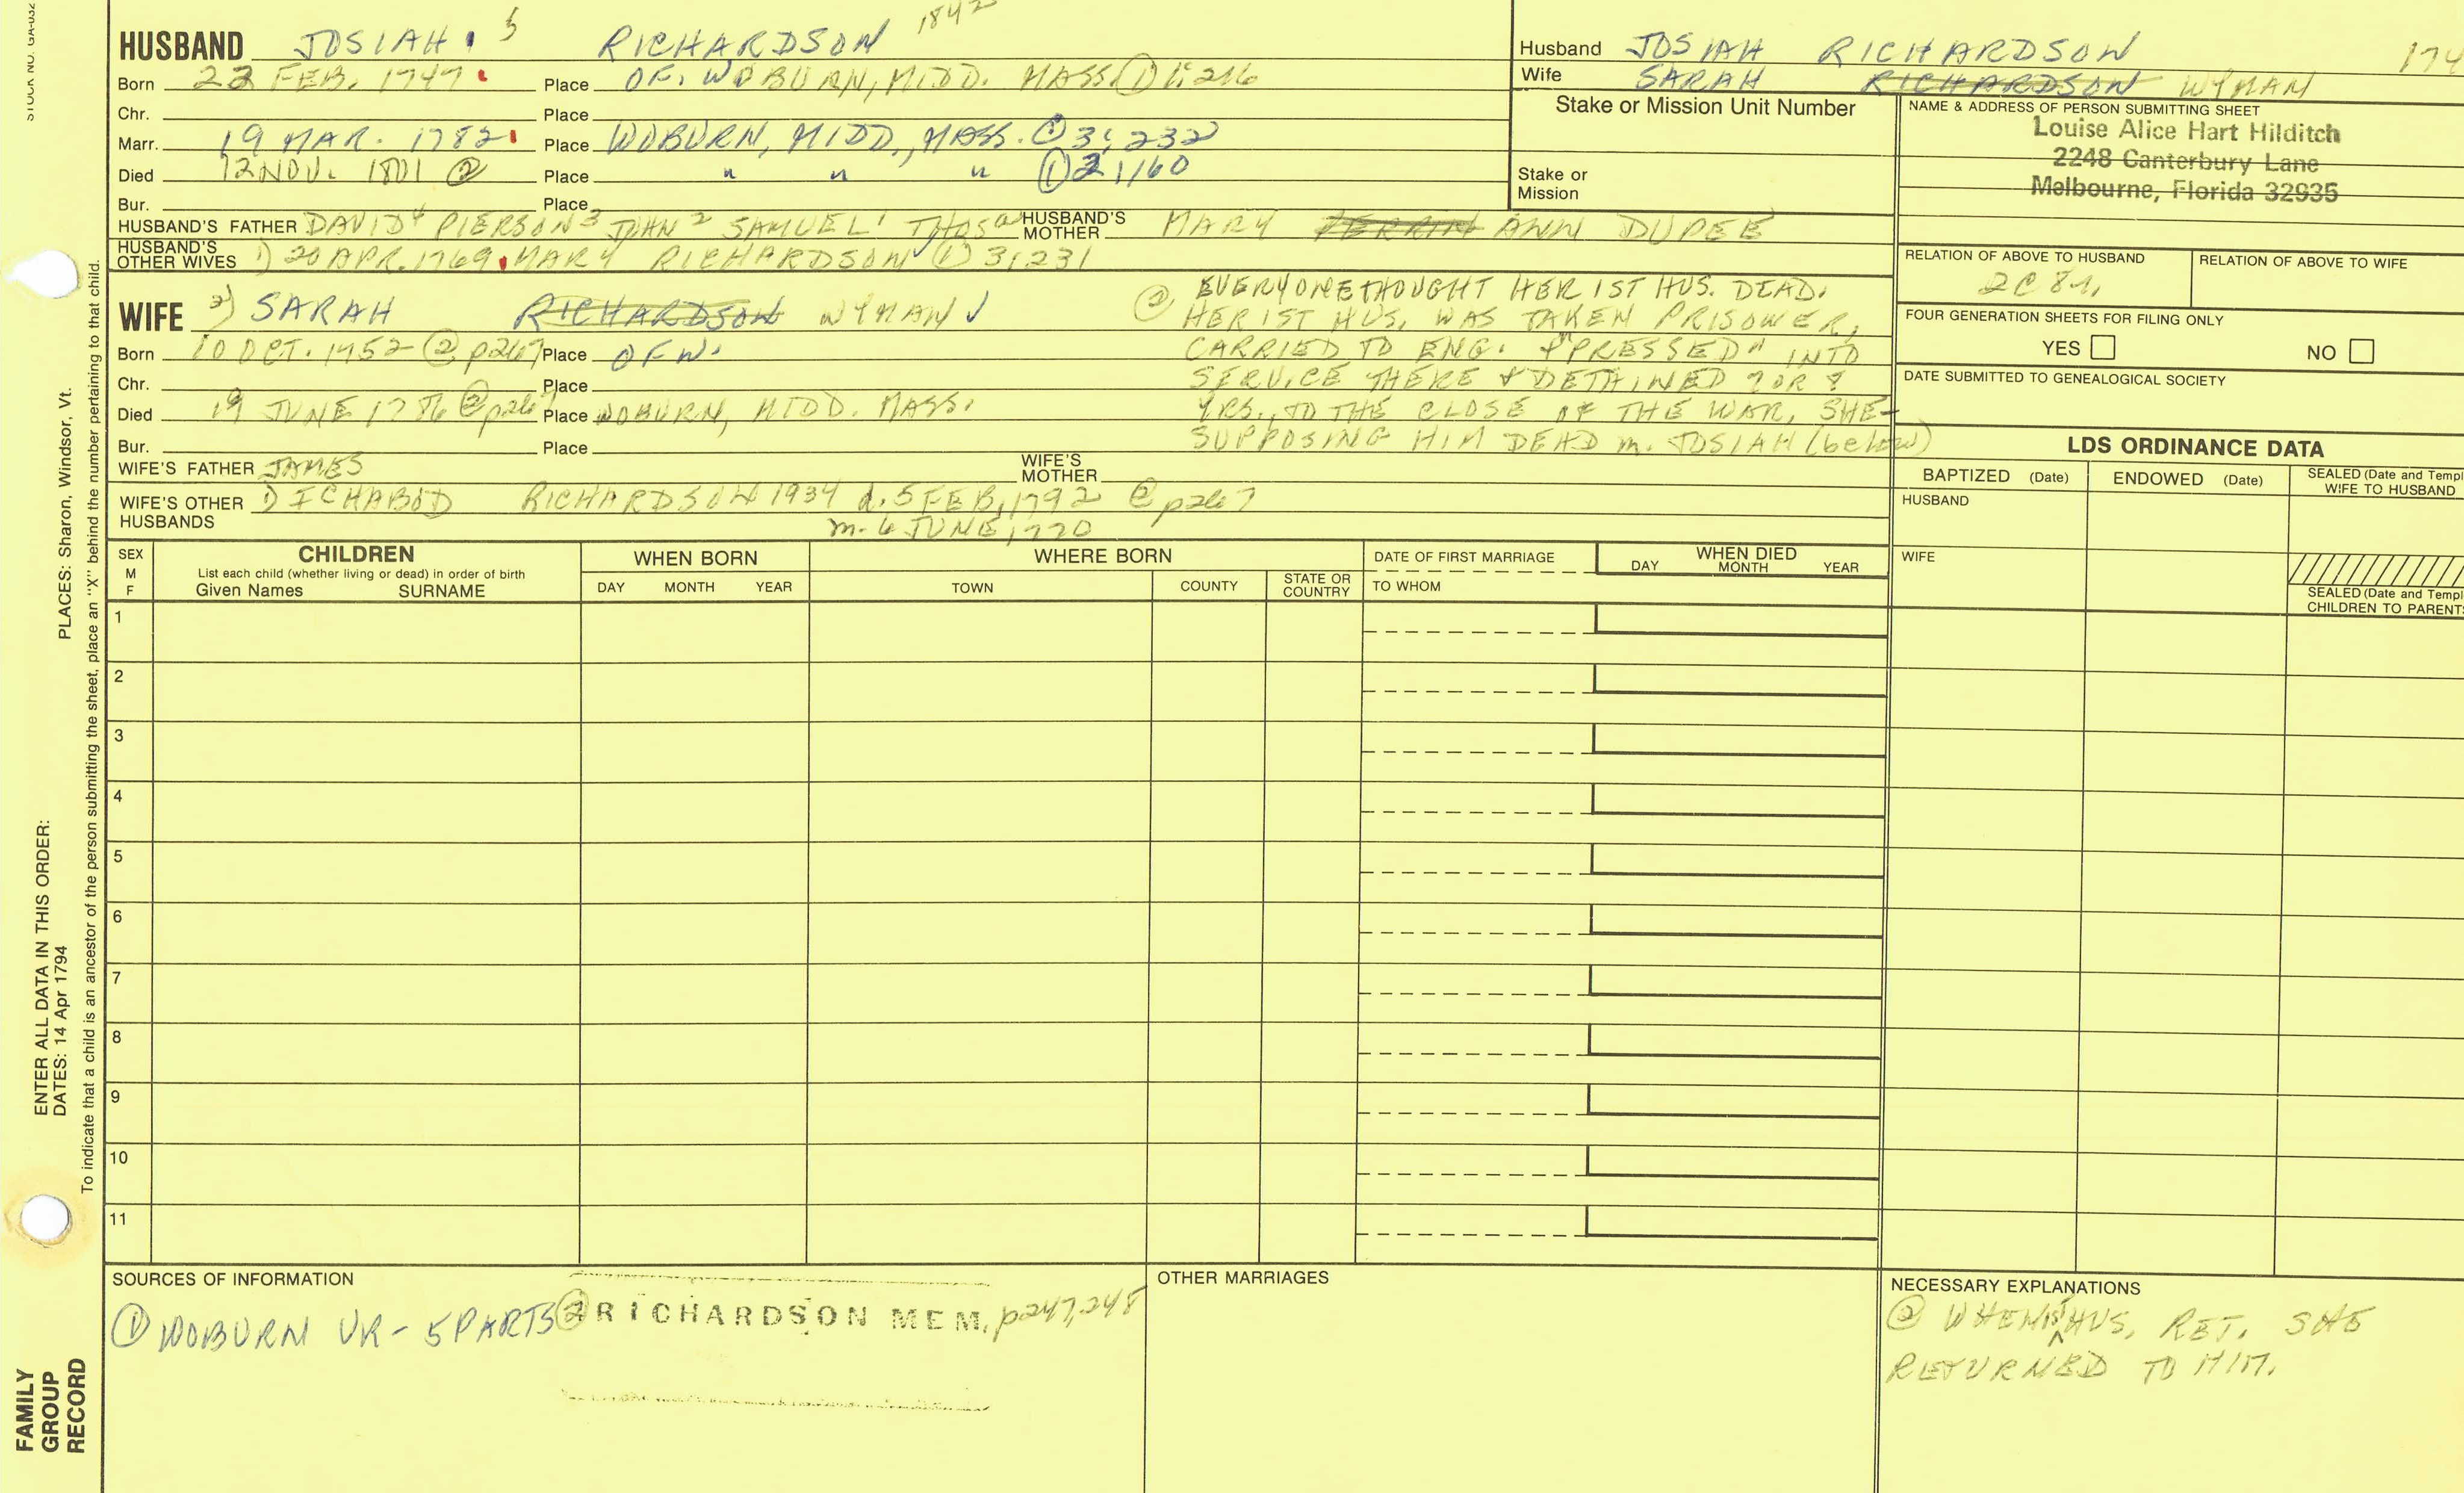 STOCK NO. GA-032
PLACES: Sharon, Windsor, Vt.
ENTER ALL DATA IN THIS ORDER:
DATES: 14 Apr 1794
To indicate that a child is an ancestor of the person submitting the sheet, place an "X" behind the number pertaining to that child.
FAMILY
GROUP
RECORD
1842
HUSBAND JOSIAH 5 RICHARDSON
Born 22 FEB. 1747 Place OF. WOBURN, MIDD. MASS. ① 1:216
Chr. Place
Marr. 19 MAR. 1782 Place WOBURN, MIDD., MASS. ① 3:232
Died 12 NOV. 1801 ② Place " " " ① 2:160
Bur. Place
HUSBAND'S FATHER DAVID 4 PIERSON 3 JOHN 2 SAMUEL 1 THOS a HUSBAND'S MOTHER MARY PERRIN ANN DUPEE
HUSBAND'S OTHER WIVES 1) 20 APR. 1769 MARY RICHARDSON ① 3:231
WIFE 2) SARAH RICHARDSON WYMAN ✓
Born 10 OCT. 1752 @ p267 Place OF W.
Chr. Place
Died 19 JUNE 1786 @ p267 Place WOBURN, MIDD. MASS.
Bur. Place
WIFE'S FATHER JAMES WIFE'S MOTHER
WIFE'S OTHER HUSBANDS 1) ICHABOD RICHARDSON 1934 d. 5 FEB, 1792 @ p267
m. 6 JUNE, 1770
② EVERYONE THOUGHT HER 1ST HUS. DEAD.
HER 1ST HUS. WAS TAKEN PRISONER,
CARRIED TO ENG. & "PRESSED" INTO
SERVICE THERE & DETAINED 7 OR 8
YRS., TO THE CLOSE OF THE WAR. SHE-
SUPPOSING HIM DEAD m. JOSIAH (below)
Husband JOSIAH RICHARDSON 174
Wife SARAH RICHARDSON WYMAN
Stake or Mission Unit Number
Stake or
Mission
NAME & ADDRESS OF PERSON SUBMITTING SHEET
Louise Alice Hart Hilditch
2248 Canterbury Lane
Melbourne, Florida 32935
RELATION OF ABOVE TO HUSBAND RELATION OF ABOVE TO WIFE
2C 8r.
FOUR GENERATION SHEETS FOR FILING ONLY
YES NO
DATE SUBMITTED TO GENEALOGICAL SOCIETY
LDS ORDINANCE DATA
BAPTIZED (Date) ENDOWED (Date) SEALED (Date and Templ
WIFE TO HUSBAND
HUSBAND
WIFE
SEALED (Date and Templ
CHILDREN TO PARENTS
SEX
M
F
CHILDREN
List each child (whether living or dead) in order of birth
Given Names SURNAME
WHEN BORN
DAY MONTH YEAR
WHERE BORN
TOWN COUNTY STATE OR COUNTRY
DATE OF FIRST MARRIAGE
TO WHOM
WHEN DIED
DAY MONTH YEAR
1
2
3
4
5
6
7
8
9
10
11
SOURCES OF INFORMATION
① WOBURN VR - 5 PARTS ② RICHARDSON MEM. p247,248
OTHER MARRIAGES
NECESSARY EXPLANATIONS
② WHEN 1ST HUS, RET. SHE
RETURNED TO HIM.